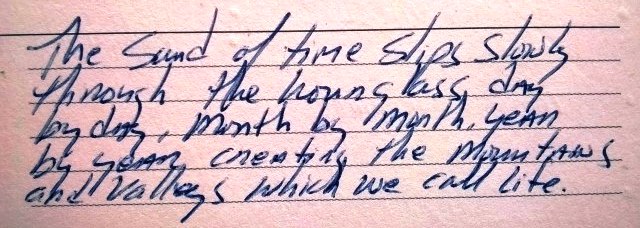 The Sand of time slips slowly
through the hourglass, day
by day, month by month, year
by year, creating the mountains
and valleys which we call life.